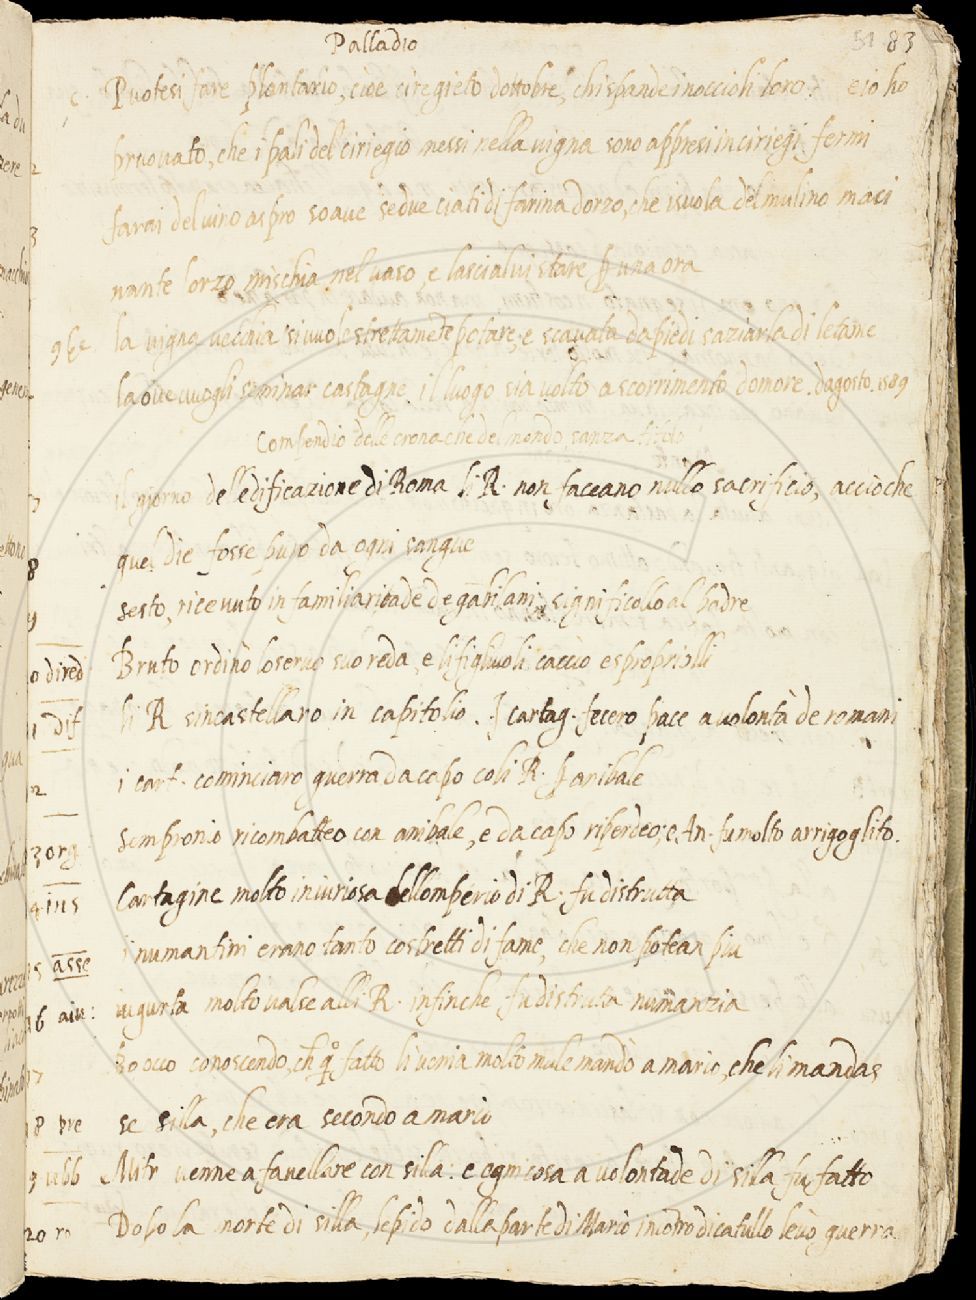 Palladio
51 83
c. Puotesi fare plantario, cioe ciregieto dottobre, chi spande i noccioli loro. e io ho
pruovato, che i pali del ciriegio messi nella vigna sono appresi in ciriegi fermi
farai del vino aspro soave se due ciati di farina dorzo, che i svola del mulino maci
nante lorzo mischia nel vaso, e lascialvi stare p una ora
la vigna vecchia si vuole strettamete potare, e scavata da piedi saziarla di letame
la ove vuogli seminar castagne il luogo sia volto a scorrimento domore. dagosto. 1589
Compendio delle cronache del mondo sanza titolo
il giorno delledificazione di Roma li R. non faceano nullo sacrificio, accioche
quel die fosse puro da ogni sangue
sesto, ricevuto in familiaritade de gabilani significollo al padre
Bruto ordinò lo servo suo reda, e li figliuoli cacciò e spropriolli
li R sincastellaro in capitolio. I cartag. fecero pace a volontà de romani
i cart. cominciaro guerra da capo coli R. p anibale
Sempronio ricombatteo con anibale, e da capo riperdeo; e An. fu molto arrigoglito.
Cartagine molto iniuriosa dellomperio di R. fu distrutta
i numantini erano tanto costretti di fame, che non potean piu
iugurta molto valse alli R. infinche fu distrutta numanzia
Bocco conoscendo, ch q. fatto li venia molto male mandò a mario, che li mandas
se silla, che era secondo a mario
Mitr venne a favellare con silla: e ogni cosa a volontade di silla fu fatto
Dopo la morte di silla, lepido dalla parte di Mario incontro di catullo levò guerra
2
3
7
8
9
0 dired
1 dif
2
3 org
4 ins
5 asse
6 aiu:
7
8 pre
9 ubb
20 ro